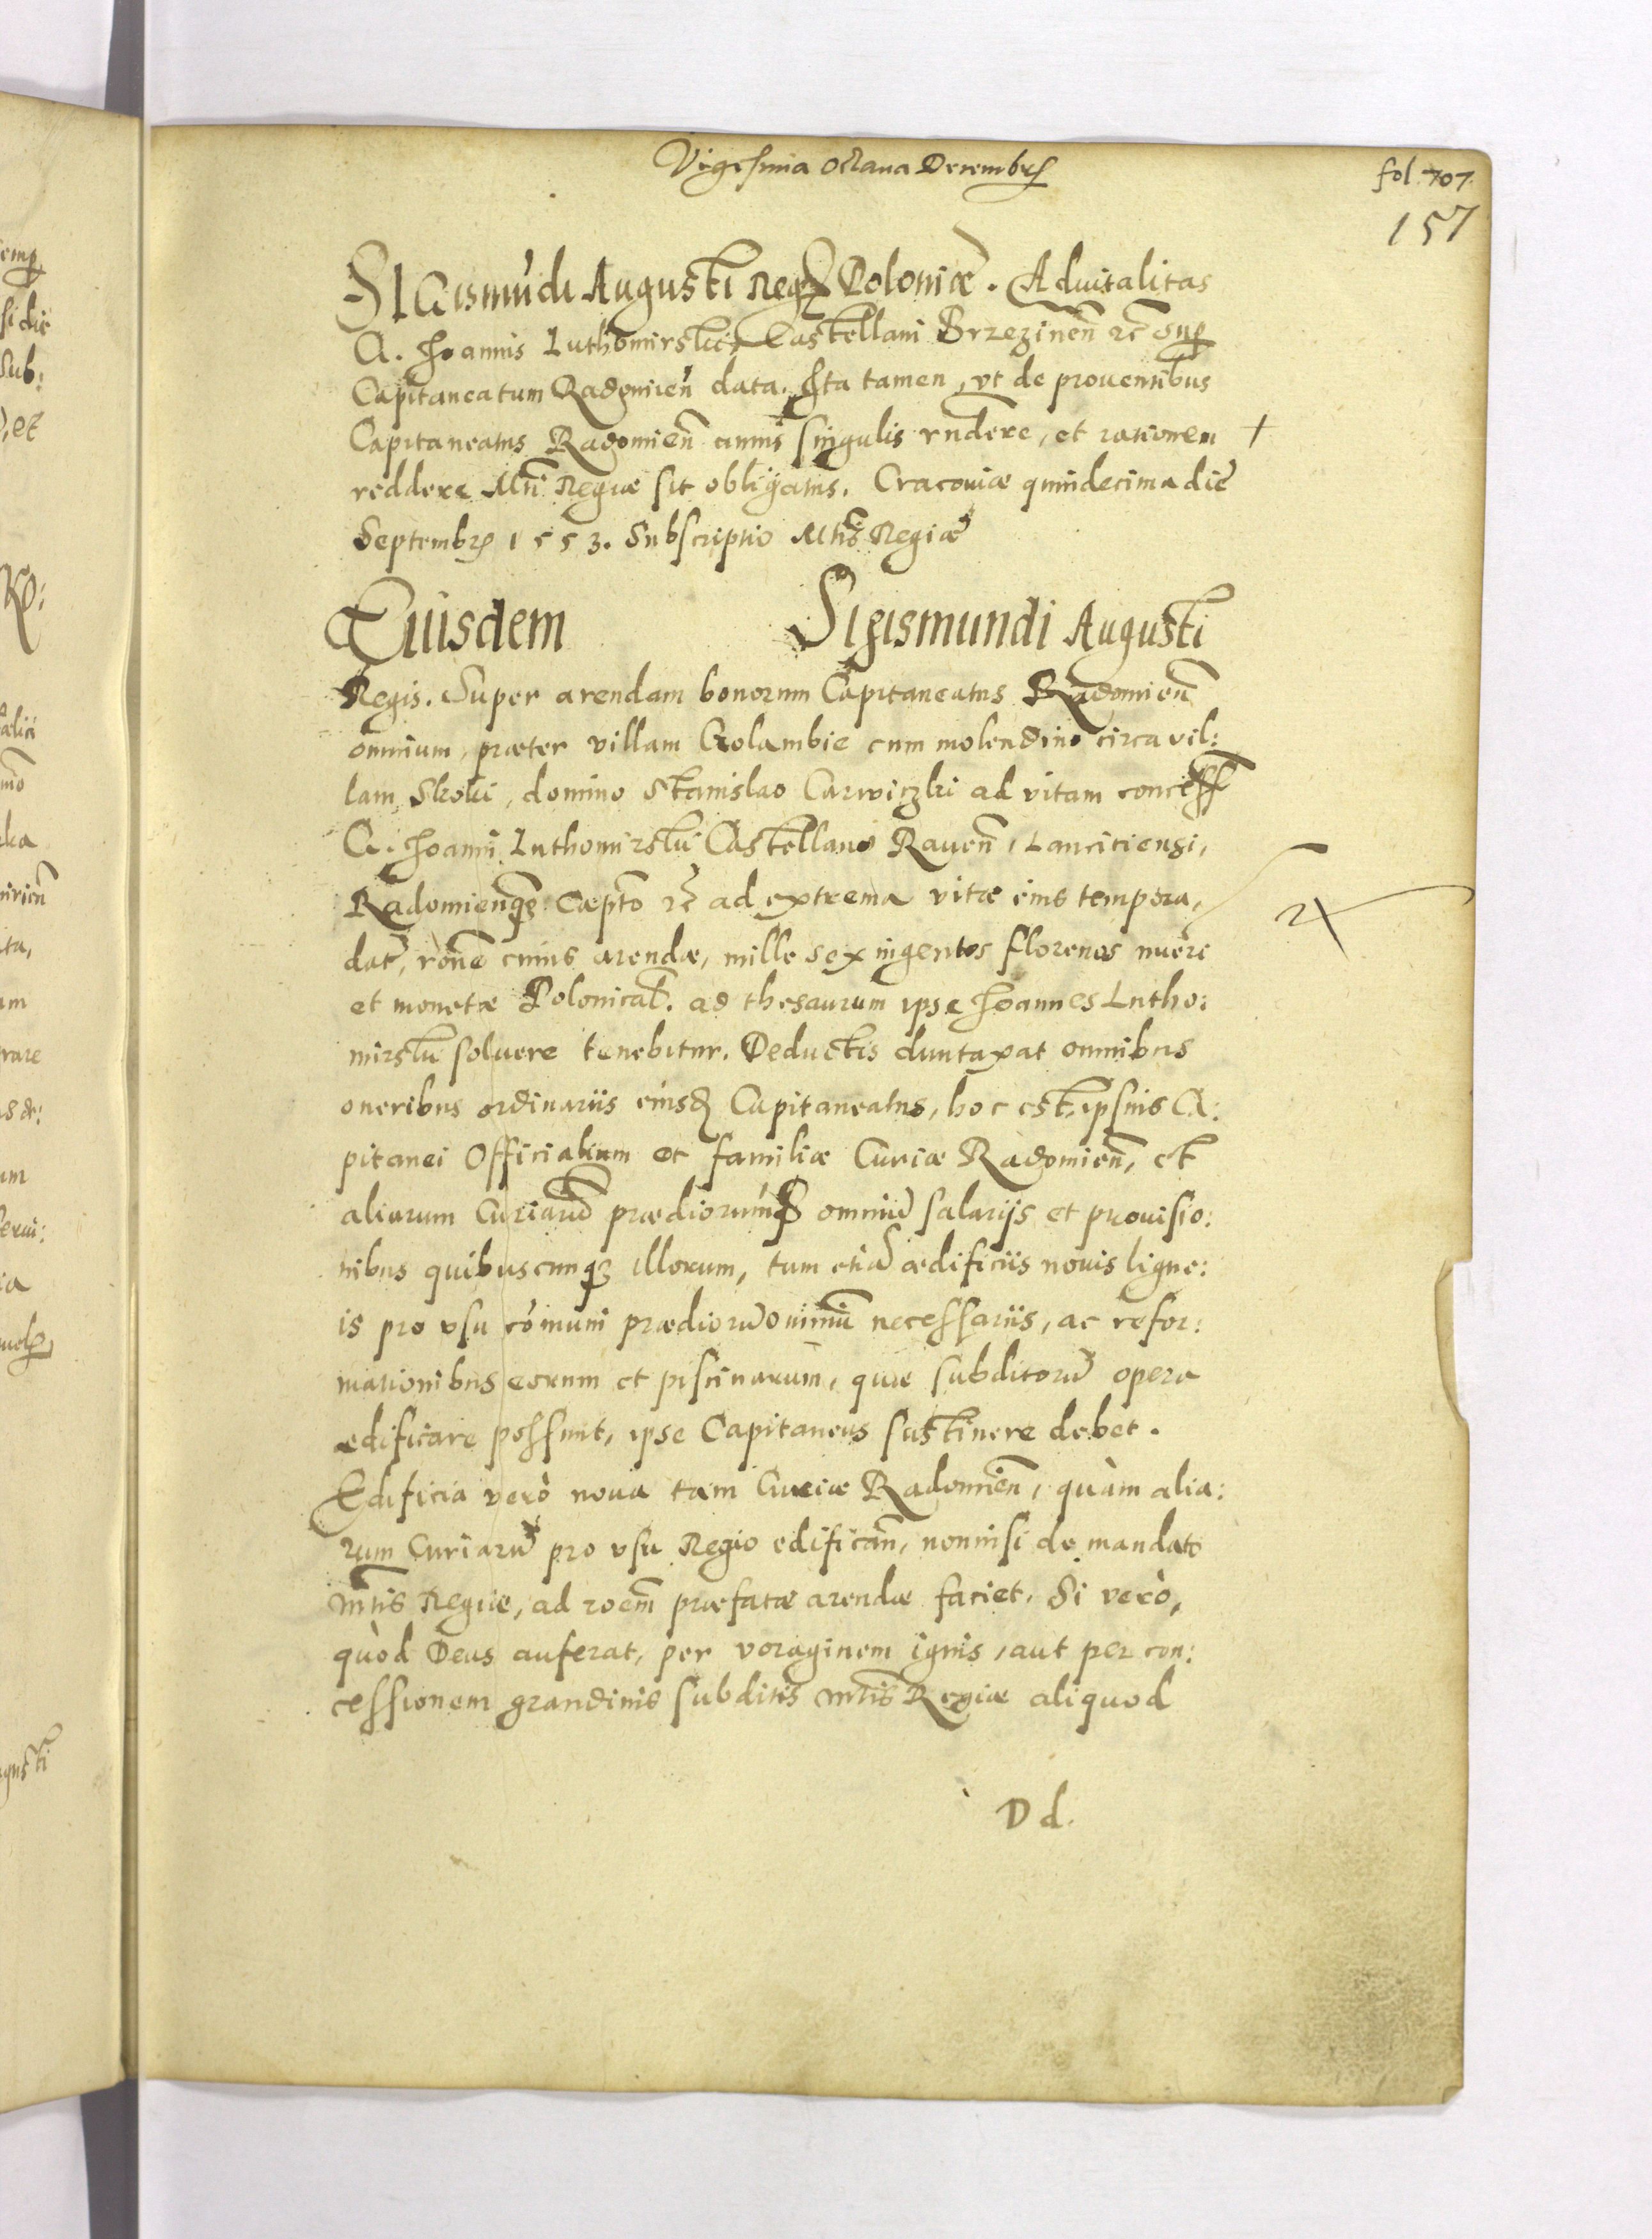 Vigesima octaua Decembrꝭ
fol. 707.
157
SIGismu̇di Augusti Regꝭ Poloniæ. Aduitalitas
G. Joannis Luthomirski Castellani Brzezinen̄ ꝛc̄ sup̱
Capitaneatum Radomien̄ data. Ita tamen, vt de prouentibus
Capitaneatus Radomien̄ annis singulis rn̄dere, et rationem +
reddere Mti Regiæ sit obligatus. Cracouiæ quindecima die
Septembrꝭ 1553. Subscriptio Mtis Regiæ
Eiusdem Sigismundi Augusti
Regis. Super arendam bonorum Capitaneatus Radomien̄
omnium, præter villam Golambie cum molendino circa vil:
lam Skoki, domino Stanislao Carwiczki ad vitam concess̄
G. Joanni Luthomirski Castellano Rauen̄, Lanciciensi,
Radomienq̃ꝫ Cap̄to ꝛc̄ ad extrema vitæ eius tempora,
dat̄, rōne cuius arendæ, mille sexingentos florenos nūeri
et monetæ Polonicał. ad thesaurum ipse Joannes Lutho:
mirski soluere tenebitur. Deductis duntaxat omnibus
oneribus ordinariis eiusd̄ Capitaneatus, hoc est, ipsius Ca:
pitanei Officialium et familiæ Curiæ Radomien̄, et
aliarum Curiarū prædiorumq̃ꝫ omniū salarijs et prouisio:
nibus quibuscunqꝫ illorum, tum etiā ædificiis nouis ligne:
is pro vsu cōmuni prædiorū omniū necessariis, ac refor:
mationibus eorum et piscinarum, quæ subditorū opera
edificare possunt, ipse Capitaneus sustinere debet.
Edificia verò noua tam Curiæ Radomien̄, quàm alia:
rum Curiarū pro vsu Regio edifican̄, nonnisi de mandato
Mtis Regiæ, ad rōem̄ præfatæ arendæ faciet. Si verò,
quòd Deus auferat, per voraginem ignis, aut per con:
cessionem grandinis subditis Mtis Regiæ aliquod
D d.